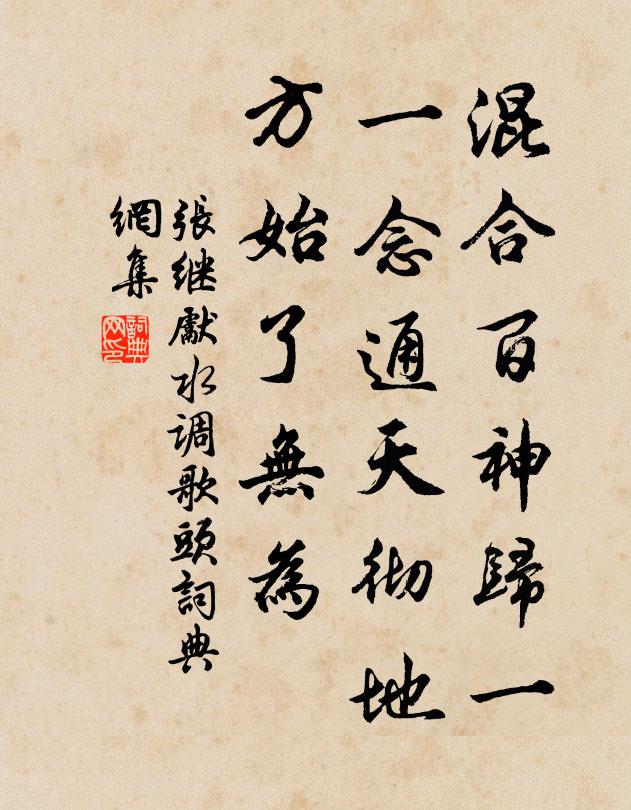 混合百神歸一
一念通天彻地
方始了無為
張继獻水调歌頭詞典
網集
詞典
网印